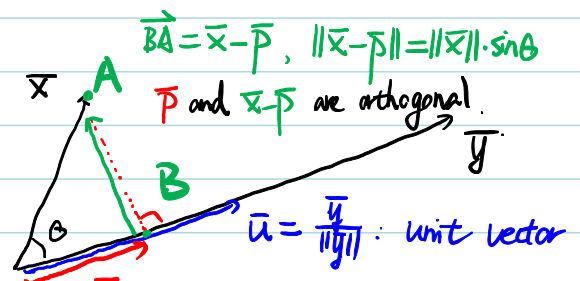 $\overrightarrow{BA} = \overline{x} - \overline{p}, \|\overline{x} - \overline{p}\| = \|\overline{x}\| \cdot \sin\theta$
$\overline{x}$ A
$\overline{p}$ and $\overline{x} - \overline{p}$ are orthogonal.
$\overline{y}$
B
θ
$\overline{u} = \frac{\overline{y}}{\|\overline{y}\|}$ : unit vector